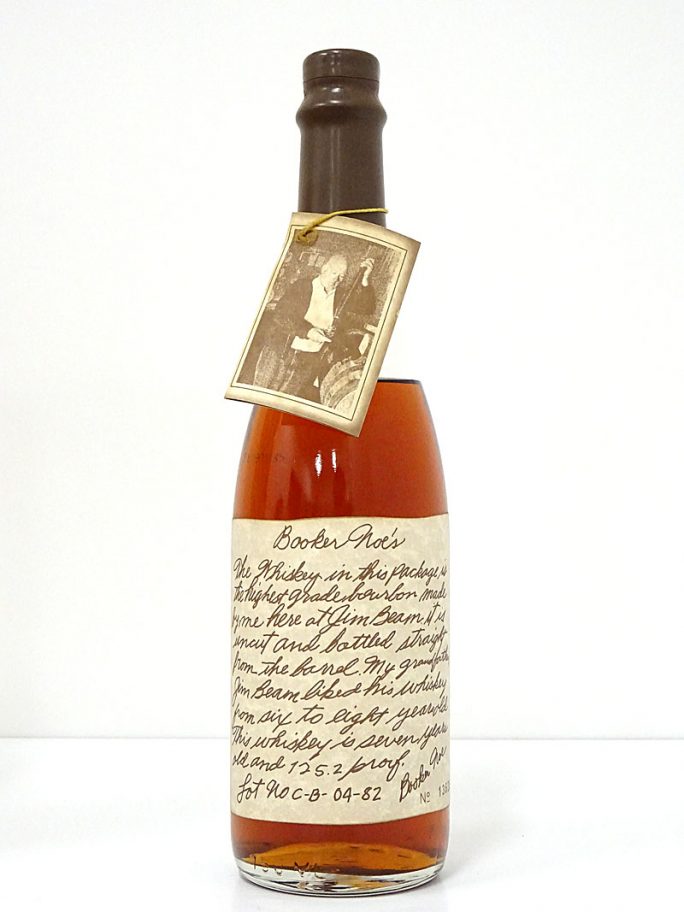 Booker Noe's
The Whiskey in this package is
the highest grade bourbon made
by me here at Jim Beam it is
uncut and bottled straight
from the barrel. My grandfather
Jim Beam liked his whiskey
from six to eight years old
This whiskey is seven years
old and 125.2 proof.
Booker Noe
Lot No C-B-04-82
No